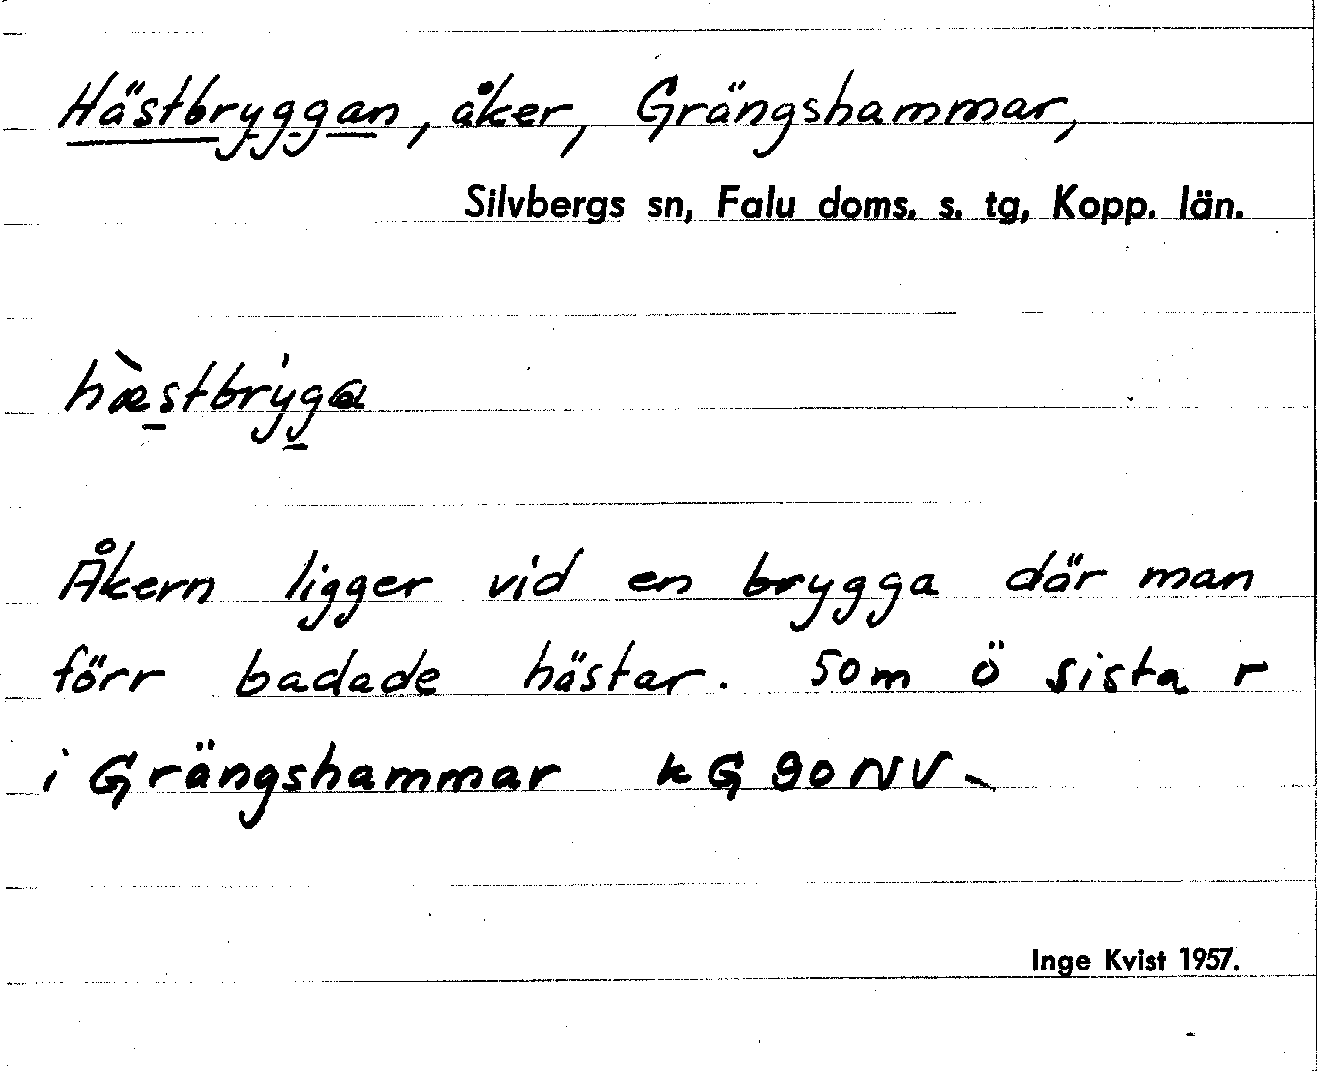 Hästbryggan, åker, Grängshammar,
Silvbergs sn, Falu doms. s. tg, Kopp. län.
hæ̀stbrỳga
Åkern ligger vid en brygga där man
förr badade hästar. Som ö sista r
i Grängshammar kG 90 NV
Inge Kvist 1957.